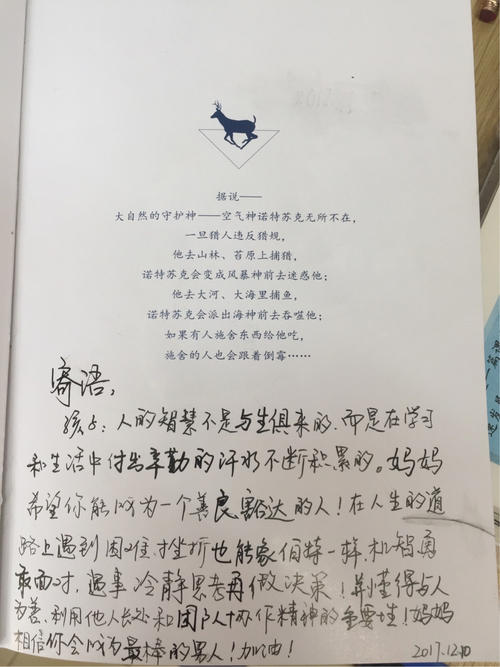 据说——
大自然的守护神——空气神诺特苏克无所不在,
一旦猎人违反猎规,
他去山林、苔原上捕猎,
诺特苏克会变成风暴神前去迷惑他;
他去大河、大海里捕鱼,
诺特苏克会派出海神前去吞噬他;
如果有人施舍东西给他吃,
施舍的人也会跟着倒霉……
寄语,
孩子:人的智慧不是与生俱来的,而是在学习
和生活中付出辛勤的汗水不断积累的。妈妈
希望你能成为一个善良豁达的人!在人生的道
路上遇到困难、挫折也能象伯特一样,机智勇
敢面对,遇事冷静思考再做决策!并懂得与人
为善、利用他人长处和团队协作精神的重要性!妈妈
相信你会成为最棒的男人!加油!
2017.12.10